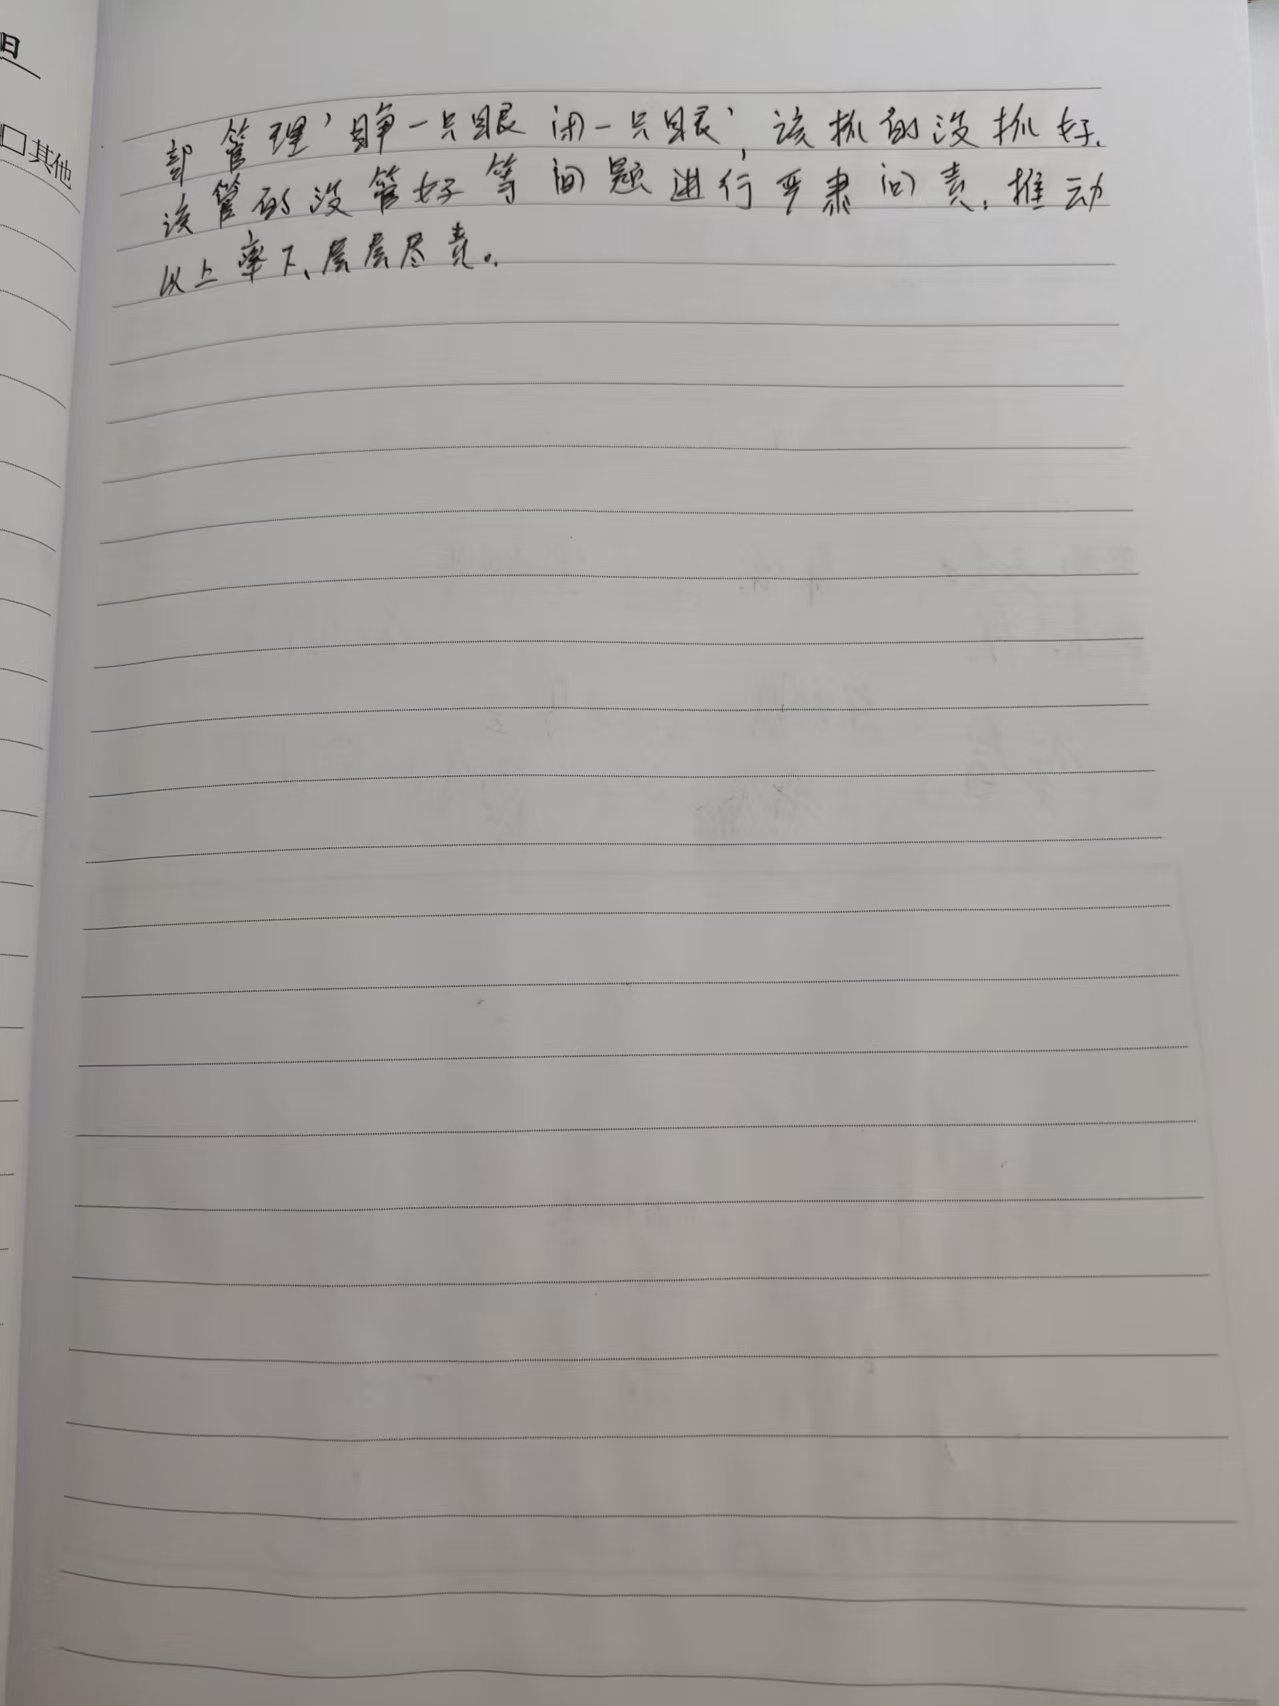 日
□其他
部管理'睁一只眼闭一只眼',该抓的没抓好、
该管的没管好等问题进行严肃问责,推动
以上率下、层层尽责。